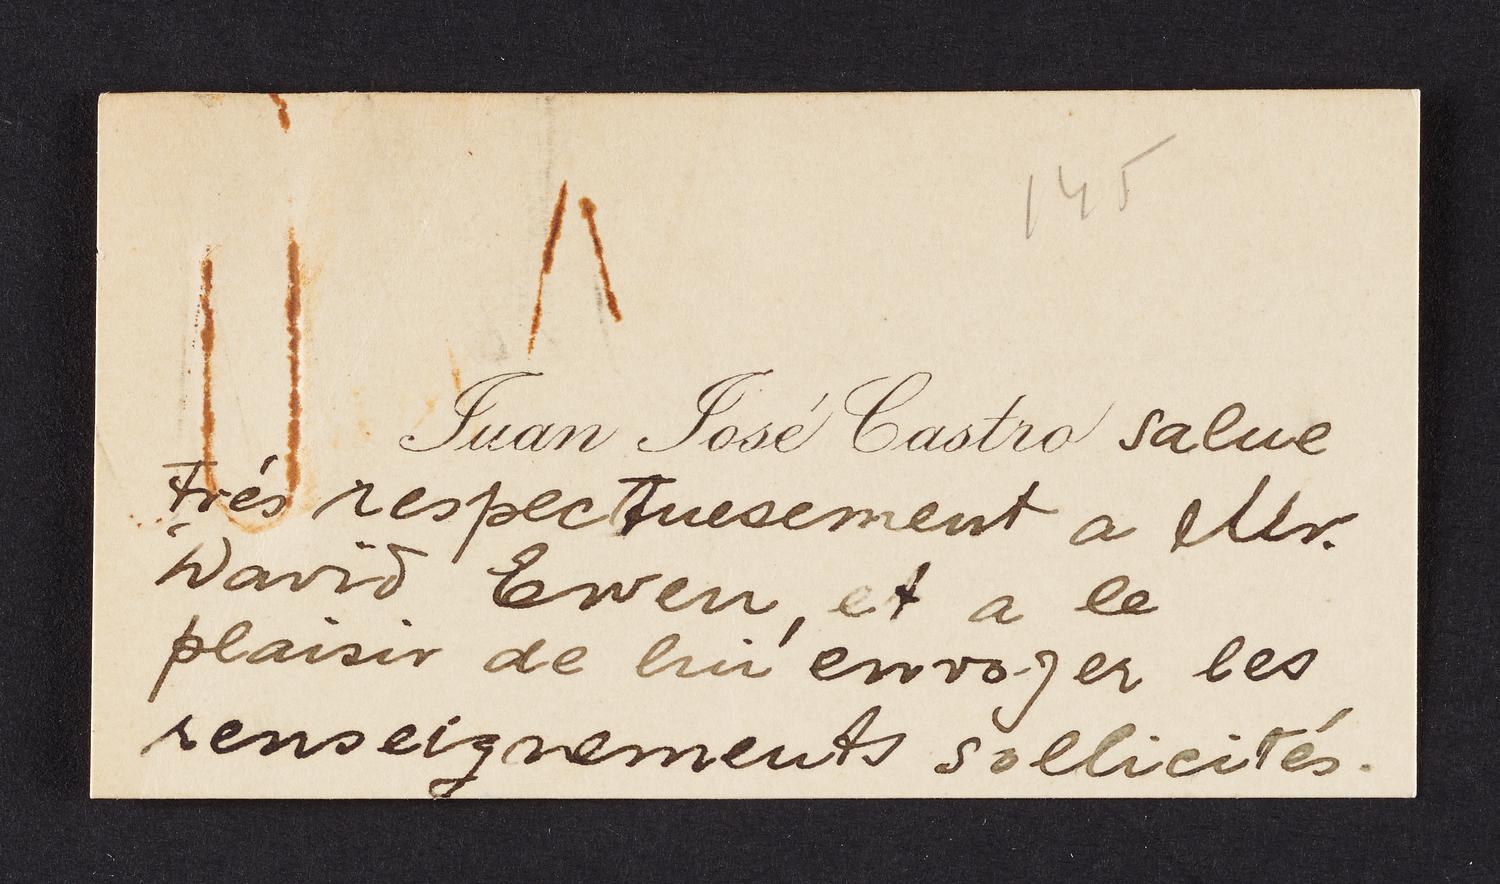 145
Juan José Castro salue
trés respectuesement a Mr.
David Ewen, et a le
plaisir de lui envoyer les
renseignements sollicités.